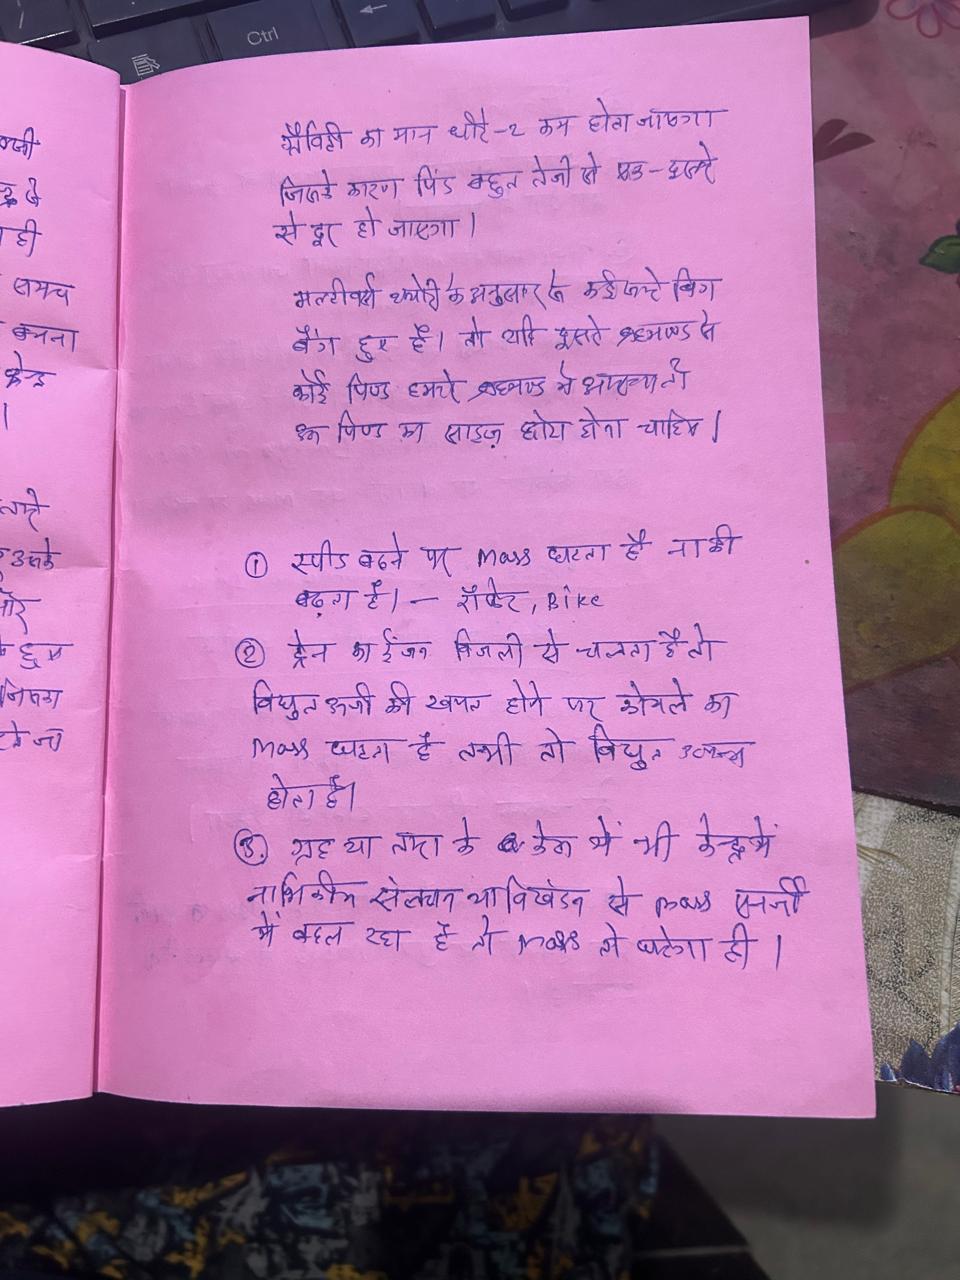 Ctrl
ग्रैविटी का मान धीरे-2 कम होता जाएगा
जिसके कारण पिंड बहुत तेजी से एक-दूसरे
से दूर हो जाएगा।
मल्टीवर्स थ्योरी के अनुसार कई बिग
बैंग हुए हैं। तो यदि दूसरे ब्रह्माण्ड से
कोई पिण्ड हमारे ब्रह्माण्ड में तो
पिण्ड का साइज छोटा होना चाहिए।
① स्पीड बढने पर mass घटता है नाकी
बढ़ता है। – रॉकेट, Bike
② ट्रेन का ईंजन बिजली से चलता है तो
विधुत ऊर्जा की खपत होने पर कोयले का
mass घटता है तभी तो विधुत उत्पन्न
होता है।
③. ग्रह या तारा के केस में भी केन्द्र में
नाभिकीय संलयन या विखंडन से mass एनर्जी
में बदल रहा है तो mass तो घटेगा ही।
ही
समय
बनना
केन्द्र
।
उसके
और